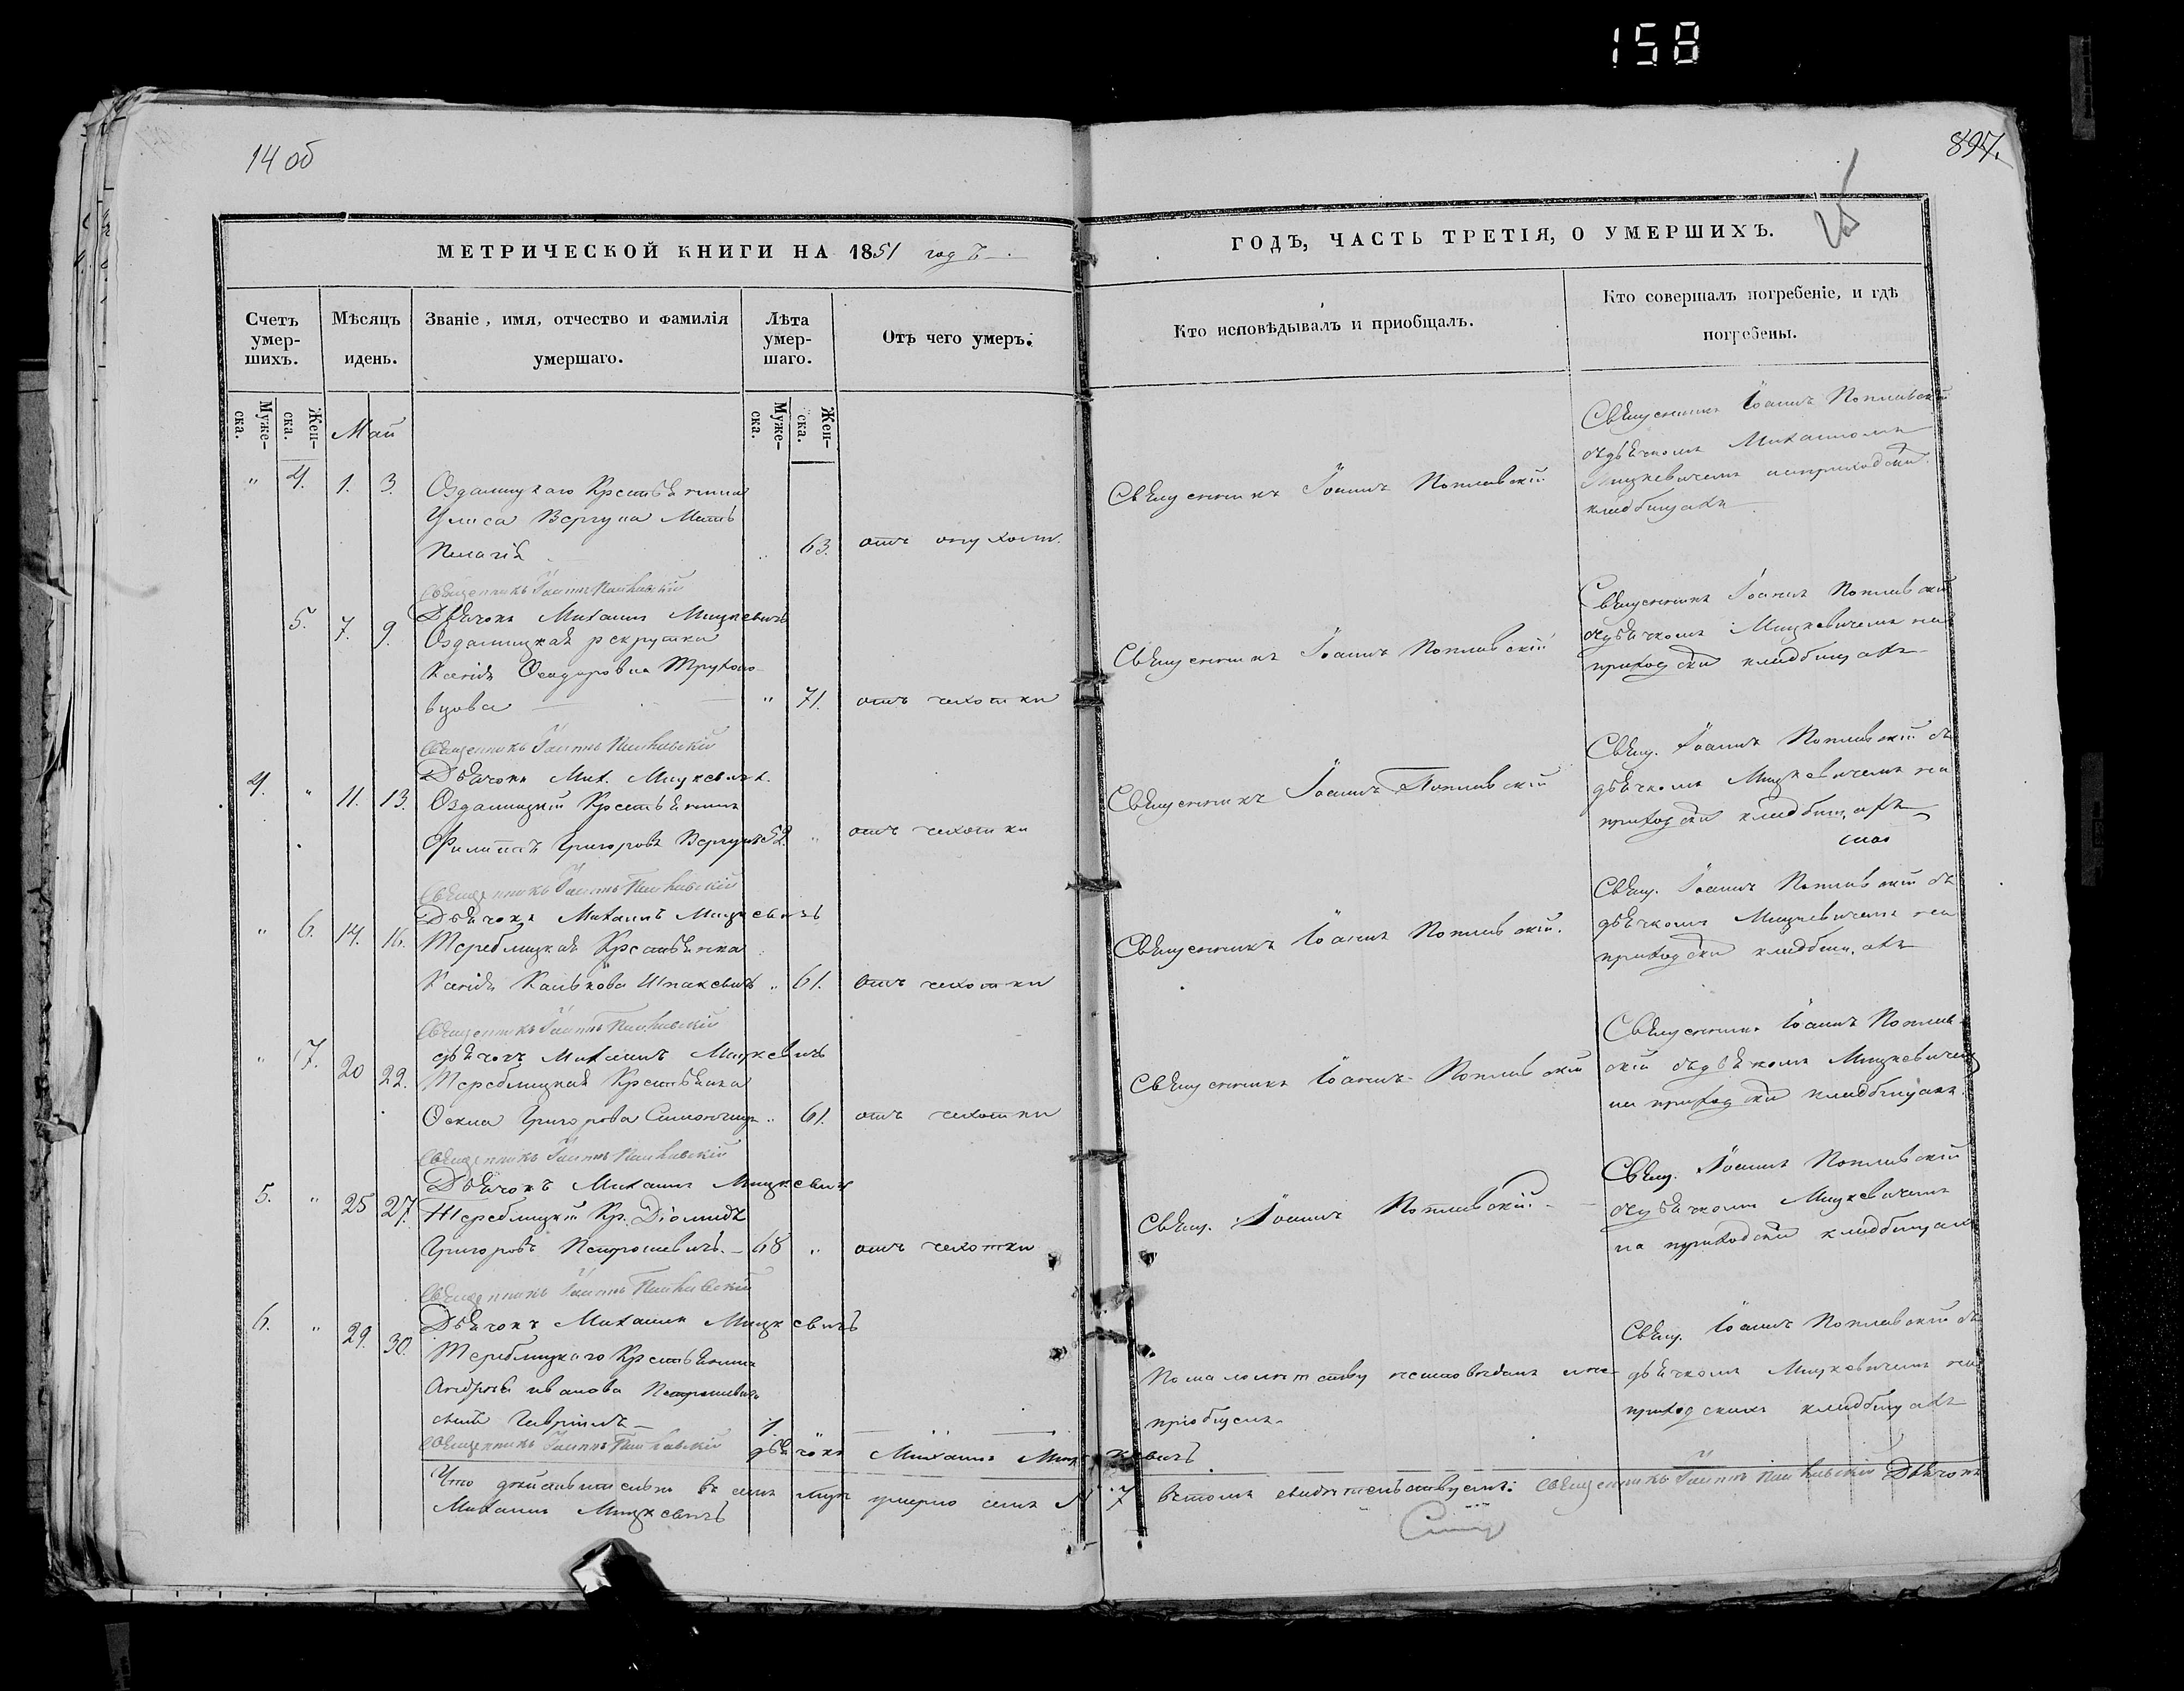 158
14 об
897.
МЕТРИЧЕСКОЙ КНИГИ НА 1851 годъ
ГОДЪ, ЧАСТЬ ТРЕТІЯ, О УМЕРШИХЪ.
Счетъ умер-шихъ.
Мѣсяцъ идень.
Званіе, имя, отчество и фамилія умершаго.
Лѣта умер-шаго.
Отъ чего умеръ.
Кто исповѣдывалъ и пріобщалъ.
Кто совершалъ погребеніе, и гдѣ погребены.
Муже-ска.
Жен-ска.
Май
Муже-ска.
Жен-ска.
" 4. 1. 3. Оздамицкаго Крестьянина
Улиса Вергуна Мать
Пелагія " 63. отъ опухоли.
Священникъ Іоаннъ Поплавскій
Священникъ Іоаннъ Поплавскій
съдьячкомъ Михаиломъ
Мицкевичемъ наприходски
кладбищахъ
Священникъ Іоаннъ Поплавскій
Дьячокъ Михаилъ Мицкевичъ
5. 7. 9. Оздамицкая рекрутка
Ксенія Феодоровна Трухоно-
вцова " 71. отъ чахотки
Священникъ Іоаннъ Поплавскій
Священникъ Іоаннъ Поплавскій
съдьячкомъ Мицкевичемъ на
приходски кладбищахъ
Священникъ Іоаннъ Поплавскій
Дьячокъ Мих. Мицкевичъ.
4. " 11. 13. Оздамицкій Крестьянинъ
Филиппъ Григоровъ Вергунъ 52. " отъ чахотки
Священникъ Іоаннъ Поплавскій
Свящ. Іоаннъ Поплавскій съ
дьячкомъ Мицкевичемъ на
приходски кладбищахъ
Священникъ Іоаннъ Поплавскій
Дьячокъ Михаилъ Мицкевичъ
" 6. 14. 16. Тереблицкая Крестьянка
Ксенія Шпакевичъ " 61. отъ чахотки
Священникъ Іоаннъ Поплавскій.
Свящ. Іоаннъ Поплавскій съ
дьячкомъ Мицкевичемъ на
приходски кладбищахъ
Священникъ Іоаннъ Поплавскій
дьячокъ Михаилъ Мицкевичъ
" 7. 20 22. Тереблицкая Крестьянка
Григорова " 61. отъ чахотки
Священникъ Іоаннъ Поплавскій
Священникъ Іоаннъ Поплав-
скій съдьякомъ Мицкевичемъ
на приходски кладбищахъ.
Священникъ Іоаннъ Поплавскій
Дьячокъ Михаилъ Мицкевичъ
5. " 25 27. Тереблицкій Кр. Діомидъ
Григоровъ Петрошевичъ. 68 " отъ чахотки
Свящ. Іоаннъ Поплавскій.
Свящ. Іоаннъ Поплавскій
съдьячкомъ Мицкевичемъ
на приходски кладбищахъ
Священникъ Іоаннъ Поплавскій
Дьячокъ Михаилъ Мицкевичъ
6. " 29. 30. Тереблицкаго Крестьянина
Андрея Иванова Петрошевича
сынъ Гавріилъ 1.
По малолѣтству неисповѣданъ ине
пріобщенъ.
Свящ. Іоаннъ Поплавскій съ
дьячкомъ Мицкевичемъ на
приходскихъ кладбищахъ
Священникъ Іоаннъ Поплавскій дьячокъ Михаилъ Мицкевичъ
Что дѣйствительно въ семъ умерло семь № 7 вътомъ свидѣтельствуемъ: Священникъ Іоаннъ Поплавскій Дьячокъ
Михаилъ Мицкевичъ